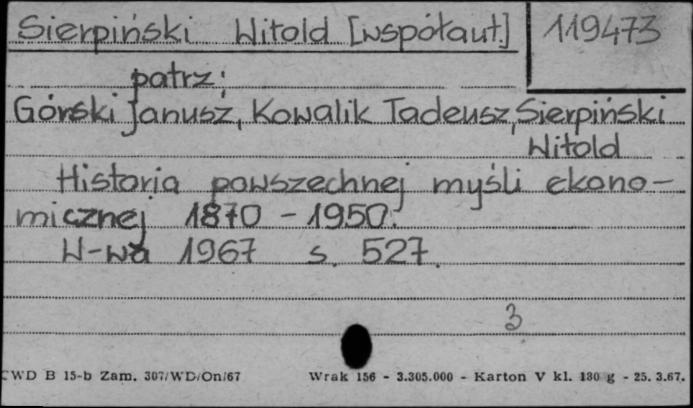 Sierpiński Witold [współaut.] 119473
patrz:
Górski Janusz, Kowalik Tadeusz, Sierpiński
Witold
Historia powszechnej myśli ekono-
micznej 1870 - 1950.
W-wa 1967 s. 527.
3
CWD B 15-b Zam. 307/WD/On/67 Wrak 156 - 3.305.000 - Karton V kl. 180 g - 25. 3.67.